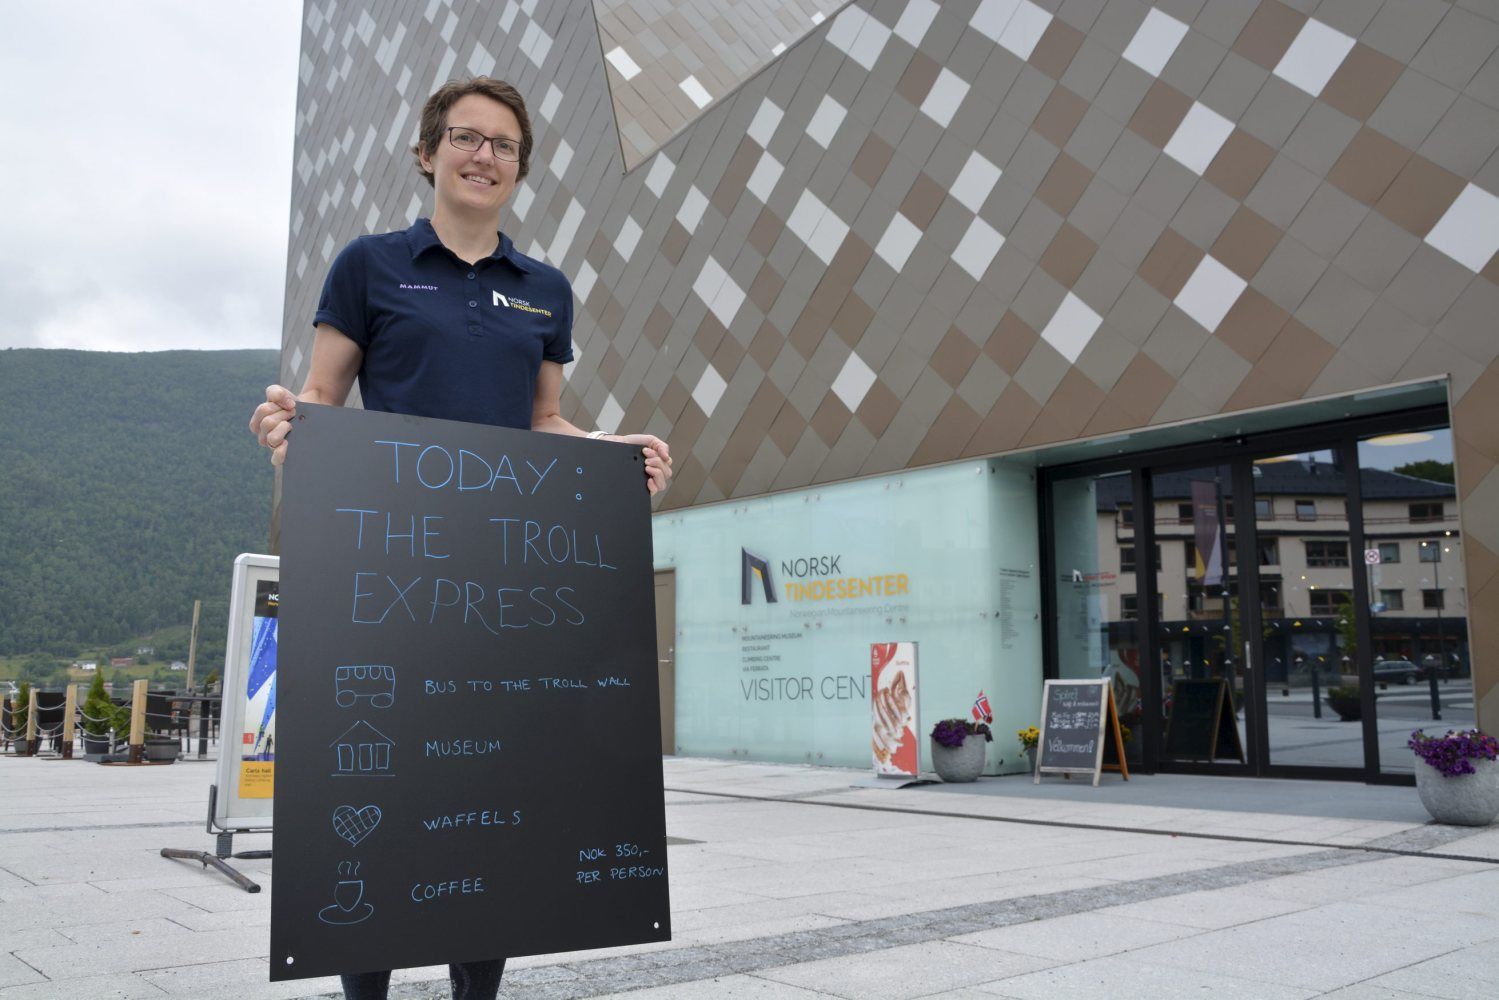 MAMMUT
NORSK
TINDESENTER
TODAY :
THE TROLL
EXPRESS
BUS TO THE TROLL WALL
MUSEUM
WAFFELS
COFFEE
NOK 350,-
PER PERSON
NORSK
TINDESENTER
Norwegian Mountaineering Centre
MOUNTAINEERING MUSEUM
RESTAURANT
CLIMBING CENTRE
VIA FERRATA
VISITOR CENT
Velkommen!